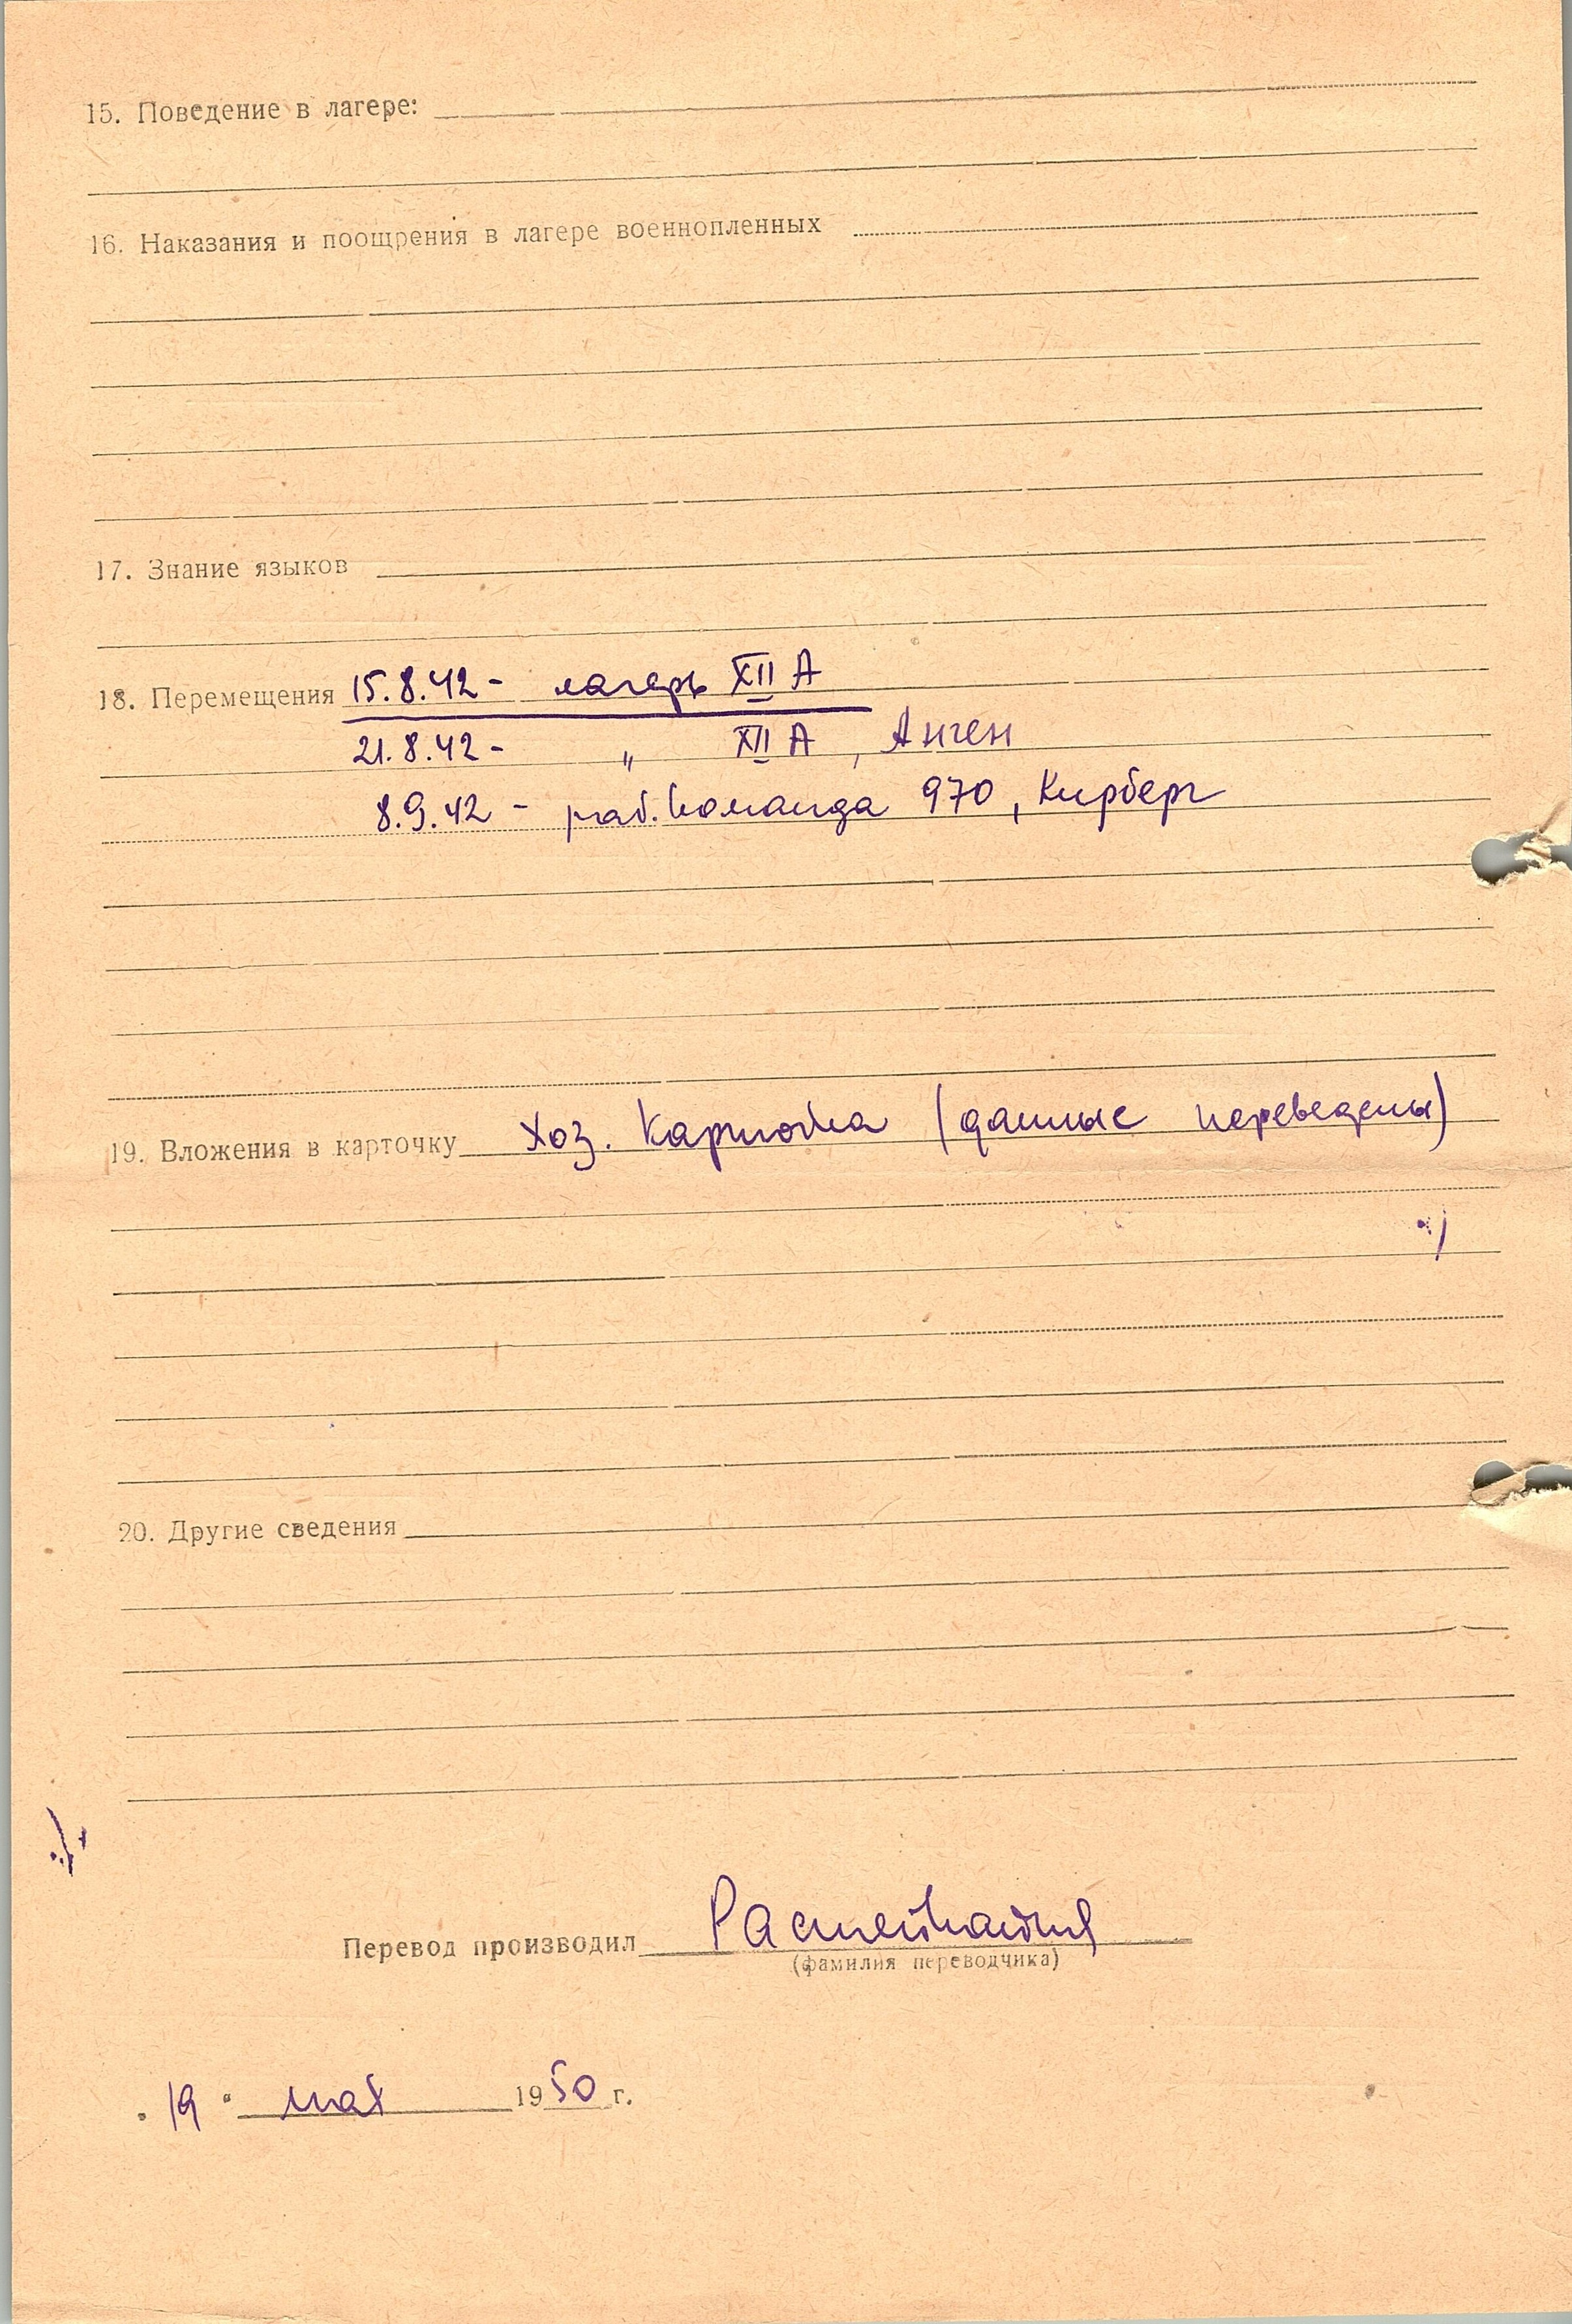 15. Поведение в лагере:
16. Наказания и поощрения в лагере военнопленных
17. Знание языков
18. Перемещения 15.8.42 - лагерь XII A
21.8.42 - " XII A, Анген
8.9.42 - раб. команда 970, Кирберг
19. Вложения в карточку хоз. карточка (данные переведены)
20. Другие сведения
Перевод производил
(фамилия переводчика)
"19" мая 1950 г.